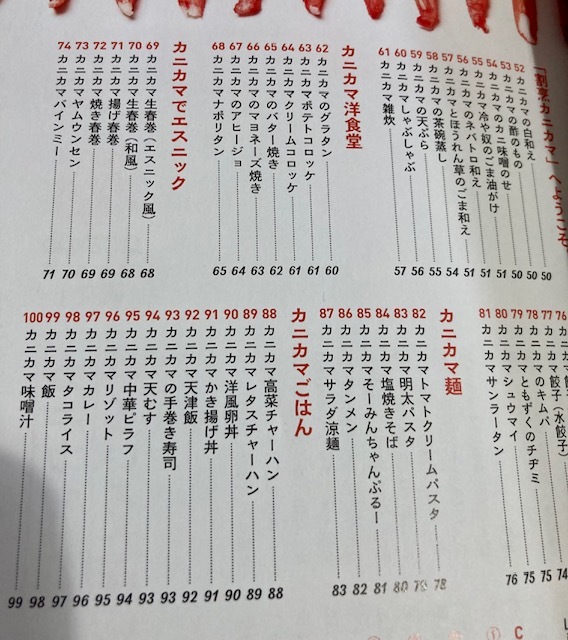 「割烹カニカマ」へようこそ
52 カニカマの白和え 50
53 カニカマの酢のもの 50
54 カニカマのカニ味噌のせ 50
55 カニカマ冷や奴のごま油がけ 51
56 カニカマのネバトロ和え 51
57 カニカマとほうれん草のごま和え 51
58 カニカマの茶碗蒸し 54
59 カニカマの天ぷら 55
60 カニカマしゃぶしゃぶ 56
61 カニカマ雑炊 57
カニカマ洋食堂
62 カニカマのグラタン 60
63 カニカマポテトコロッケ 61
64 カニカマクリームコロッケ 61
65 カニカマのバター焼き 62
66 カニカマのマヨネーズ焼き 63
67 カニカマのアヒージョ 64
68 カニカマナポリタン 65
カニカマでエスニック
69 カニカマ生春巻（エスニック風） 68
70 カニカマ生春巻（和風） 68
71 カニカマ揚げ春巻 69
72 カニカマ焼き春巻 69
73 カニカマヤムウンセン 70
74 カニカマバインミー 71
76
77 カニカマ餃子（水餃子）
78 カニカマのキムパ 74
79 カニカマともずくのチヂミ 75
80 カニカマシュウマイ 75
81 カニカマサンラータン 76
カニカマ麺
82 カニカマトマトクリームパスタ 78
83 カニカマ明太パスタ 79
84 カニカマ塩焼きそば 80
85 カニカマそーみんちゃんぷるー 81
86 カニカマタンメン 82
87 カニカマサラダ涼麺 83
カニカマごはん
88 カニカマ高菜チャーハン 88
89 カニカマレタスチャーハン 89
90 カニカマ洋風卵丼 90
91 カニカマかき揚げ丼 91
92 カニカマ天津飯 92
93 カニカマの手巻き寿司 93
94 カニカマ天むす 93
95 カニカマ中華ピラフ 94
96 カニカマリゾット 95
97 カニカマカレー 96
98 カニカマタコライス 97
99 カニカマ飯 98
100 カニカマ味噌汁 99